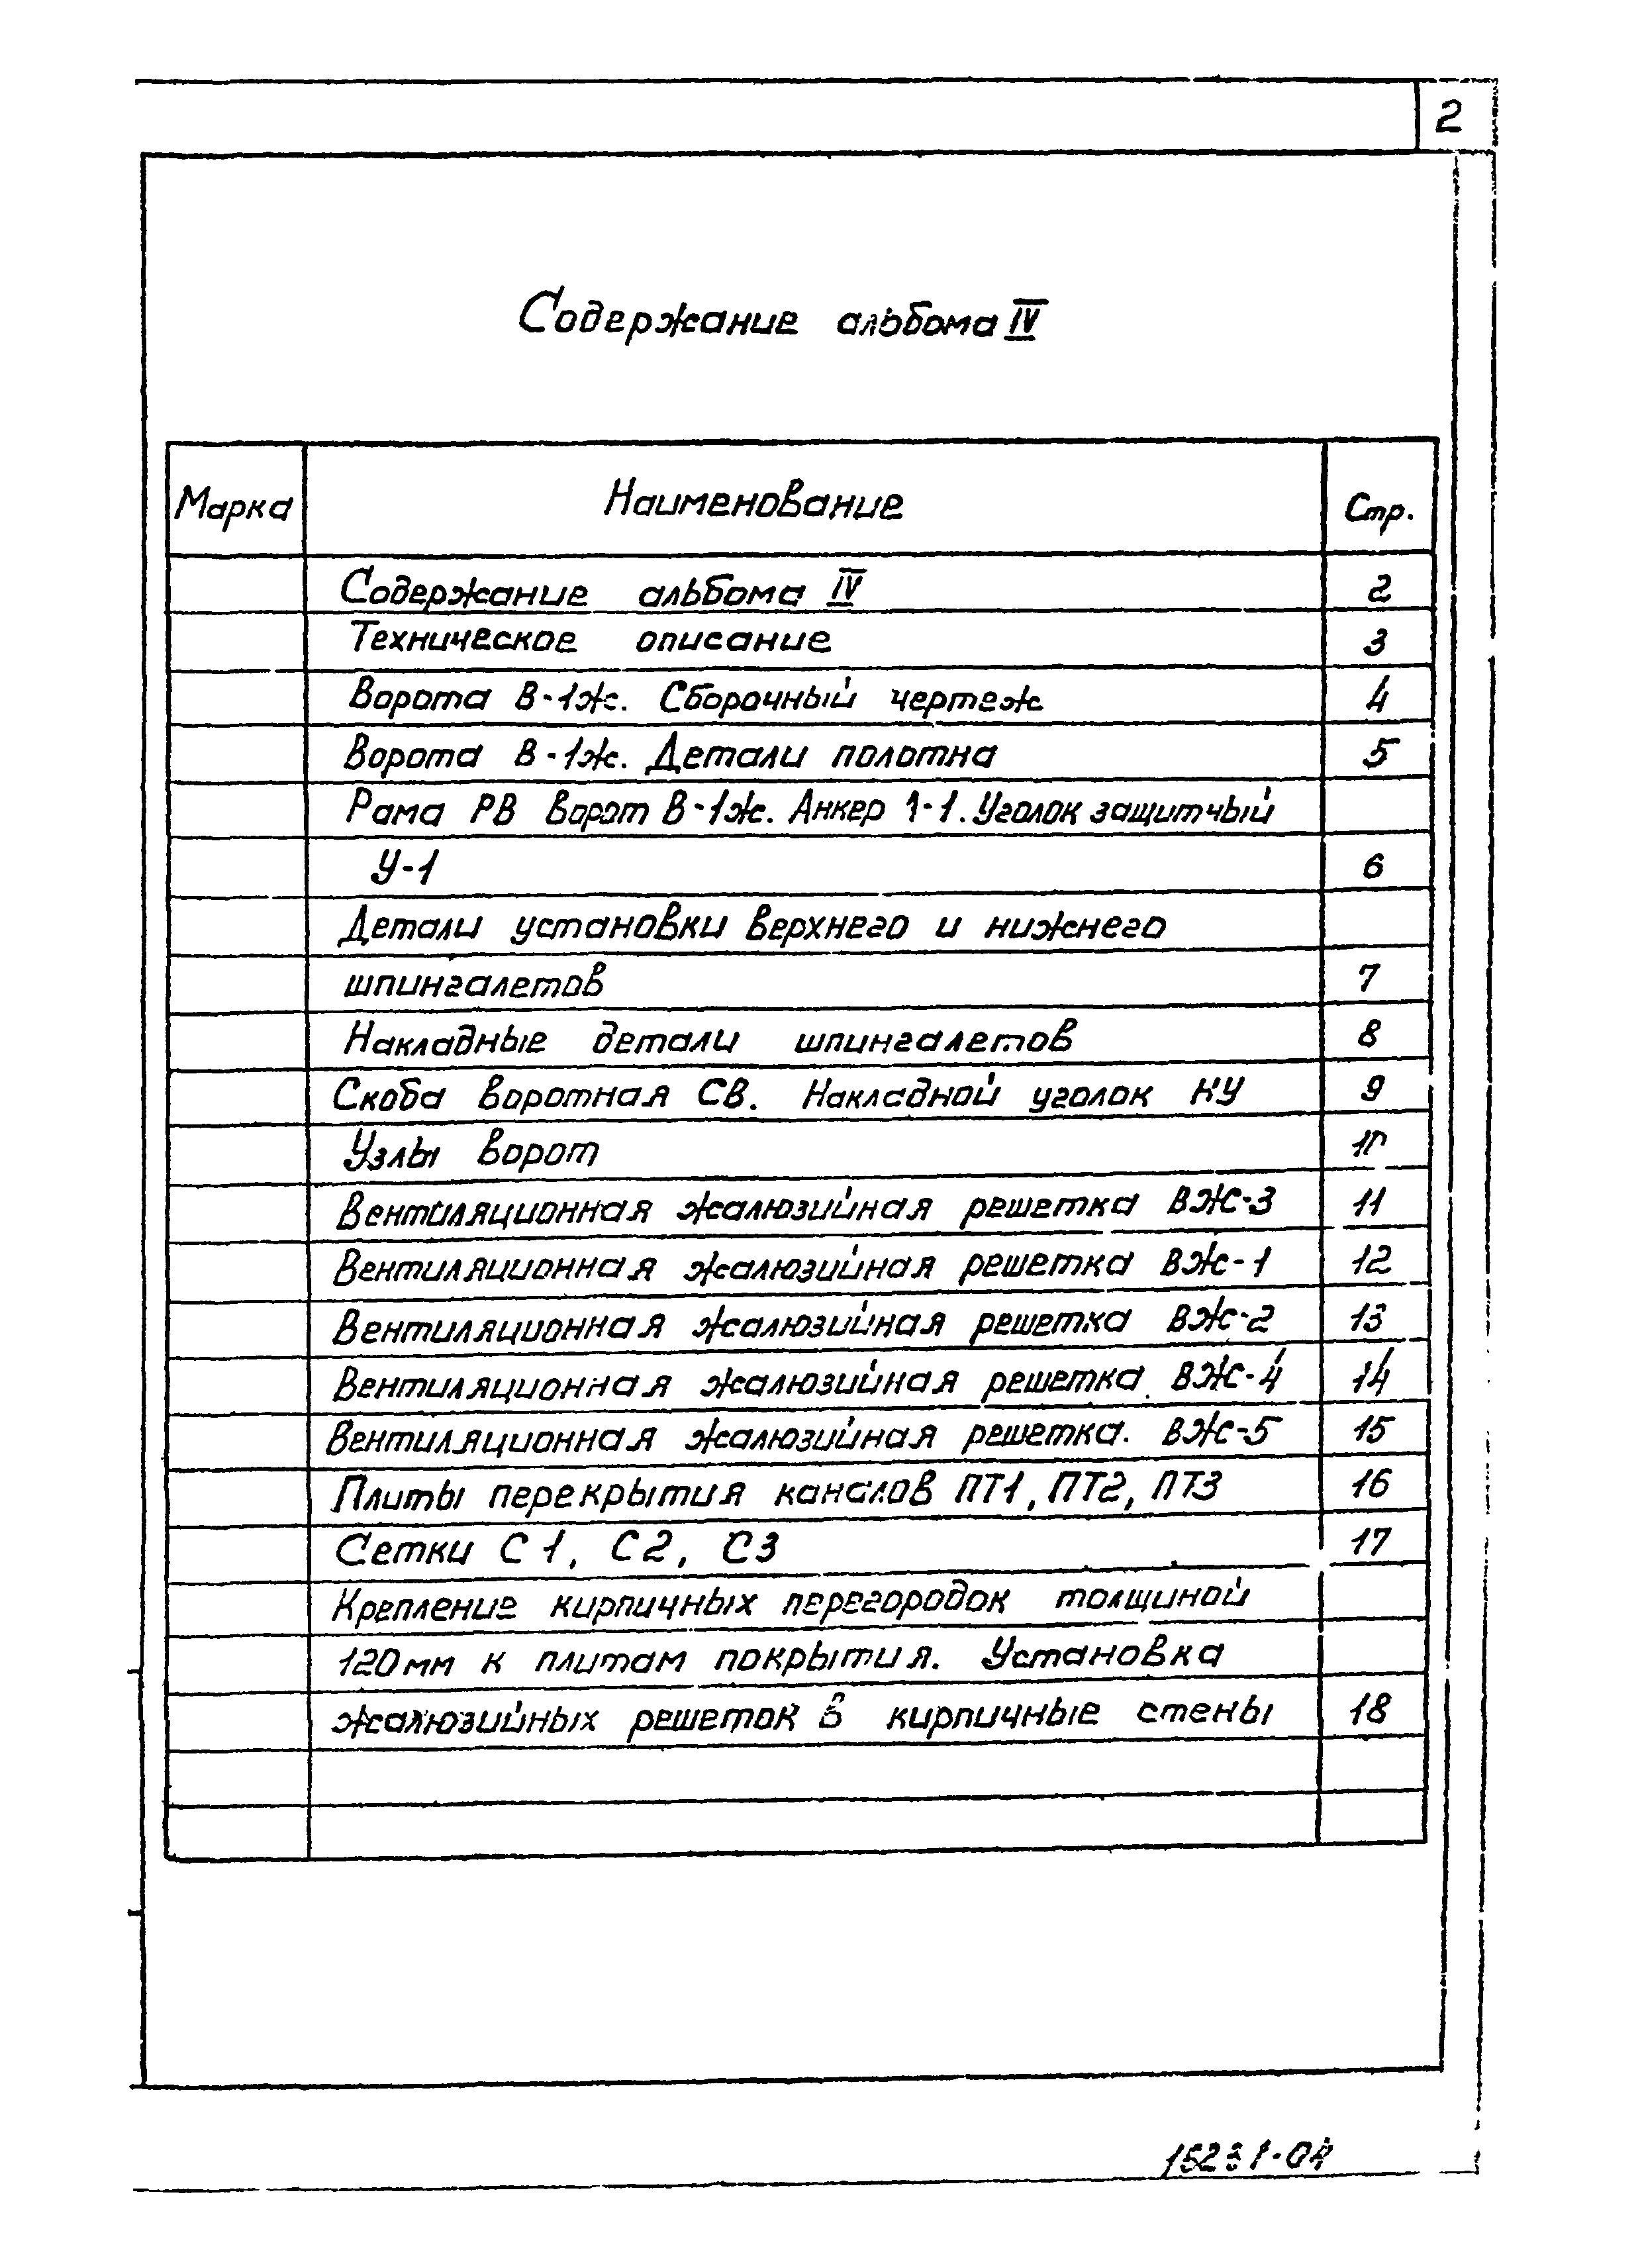 2
Содержание альбома IV
Марка Наименование Стр.
Содержание альбома IV 2
Техническое описание 3
Ворота В-1ж. Сборочный чертеж 4
Ворота В-1ж. Детали полотна 5
Рама РВ ворот В-1ж. Анкер 1-1. Уголок защитный
У-1 6
Детали установки верхнего и нижнего
шпингалетов 7
Накладные детали шпингалетов 8
Скоба воротная СВ. Накладной уголок НУ 9
Узлы ворот 10
Вентиляционная жалюзийная решетка ВЖ-3 11
Вентиляционная жалюзийная решетка ВЖ-1 12
Вентиляционная жалюзийная решетка ВЖ-2 13
Вентиляционная жалюзийная решетка ВЖ-4 14
Вентиляционная жалюзийная решетка. ВЖ-5 15
Плиты перекрытия каналов ПТ1, ПТ2, ПТ3 16
Сетки С1, С2, С3 17
Крепление кирпичных перегородок толщиной
120мм к плитам покрытия. Установка
жалюзийных решеток в кирпичные стены 18
15231-04